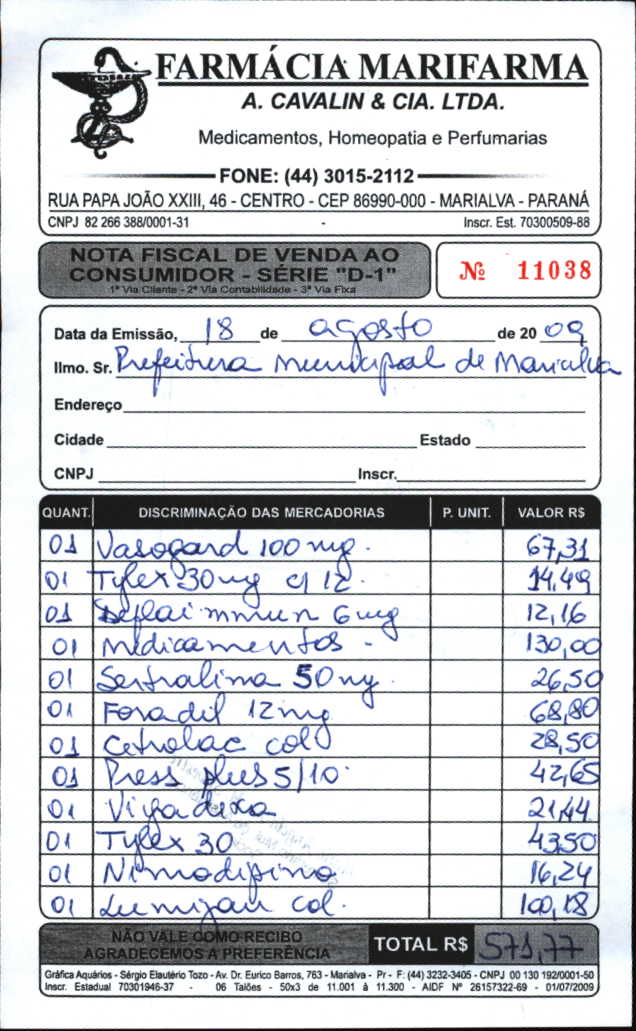 FARMÁCIA MARIFARMA
A. CAVALIN & CIA. LTDA.
Medicamentos, Homeopatia e Perfumarias
FONE: (44) 3015-2112
RUA PAPA JOÃO XXIII, 46 - CENTRO - CEP 86990-000 - MARIALVA - PARANÁ
CNPJ 82 266 388/0001-31 - Inscr. Est. 70300509-88
NOTA FISCAL DE VENDA AO
CONSUMIDOR - SÉRIE "D-1"
1ª Via Cliente - 2ª Via Contabilidade - 3ª Via Fixa
Nº 11038
Data da Emissão, 18 de agosto de 2009
Ilmo. Sr. Prefeitura municipal de Marialva
Endereço
Cidade Estado
CNPJ Inscr.
QUANT. DISCRIMINAÇÃO DAS MERCADORIAS P. UNIT. VALOR R$
01 Vasogard 100 mg. 67,31
01 Tylex 30mg c/ 12. 14,49
01 Deflaimmun 6mg 12,16
01 medicamentos - 130,00
01 Sertralima 50mg. 26,50
01 Foradil 12mg 68,80
01 Cetrolac col 28,50
01 Press plus 5/10. 42,65
01 Vigadexa 21,44
01 Tylex 30 43,50
01 Nimodipino 16,24
01 Lumigan col. 100,18
NÃO VALE COMO RECIBO
AGRADECEMOS A PREFERÊNCIA
TOTAL R$ 571,77
Gráfica Aquários - Sérgio Elautério Tozo - Av. Dr. Eurico Barros, 763 - Marialva - Pr - F: (44) 3232-3405 - CNPJ 00 130 192/0001-50
Inscr. Estadual 70301946-37 - 06 Talões - 50x3 de 11.001 à 11.300 - AIDF Nº 26157322-69 - 01/07/2009